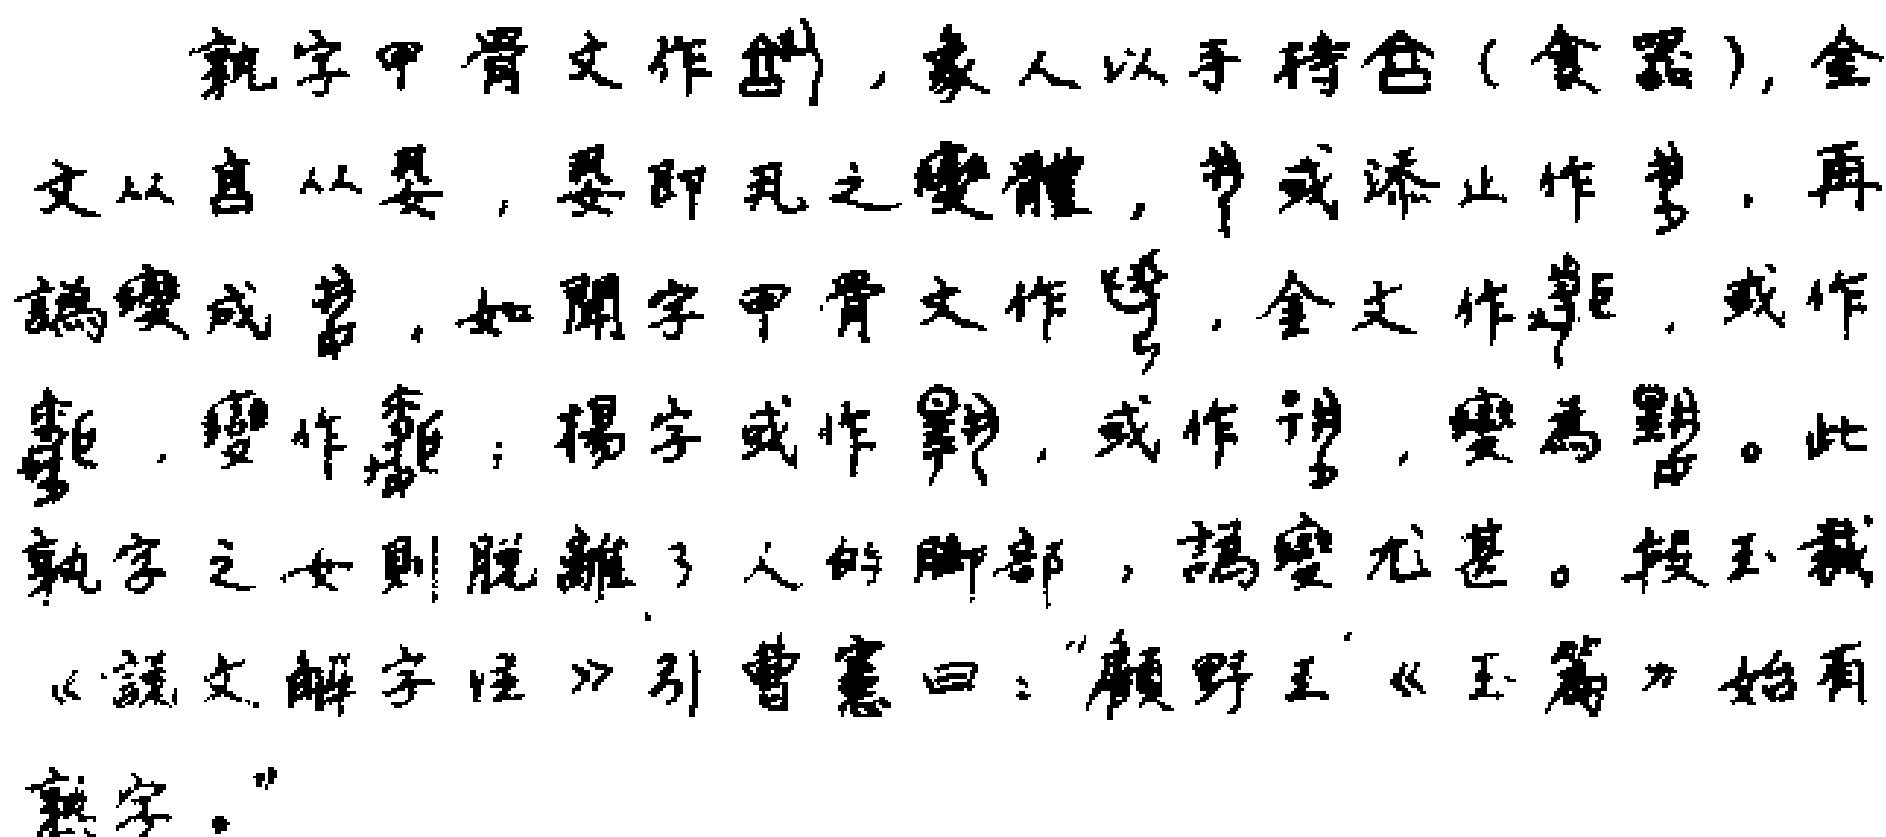 孰字甲骨文作，象人以手持（食器），金
文从𦎫从，即丮之變體，或添止作，再
譌變成，如聞字甲骨文作，金文作，或作
，變作；揚字或作，或作，變為。此
孰字之女則脫離了人的脚部，譌變尤甚。段玉裁
《說文解字注》引曹憲曰：“顧野王《玉篇》始有
熟字。”